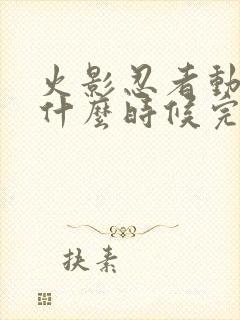 火影忍者動
什麼時候完
扶素